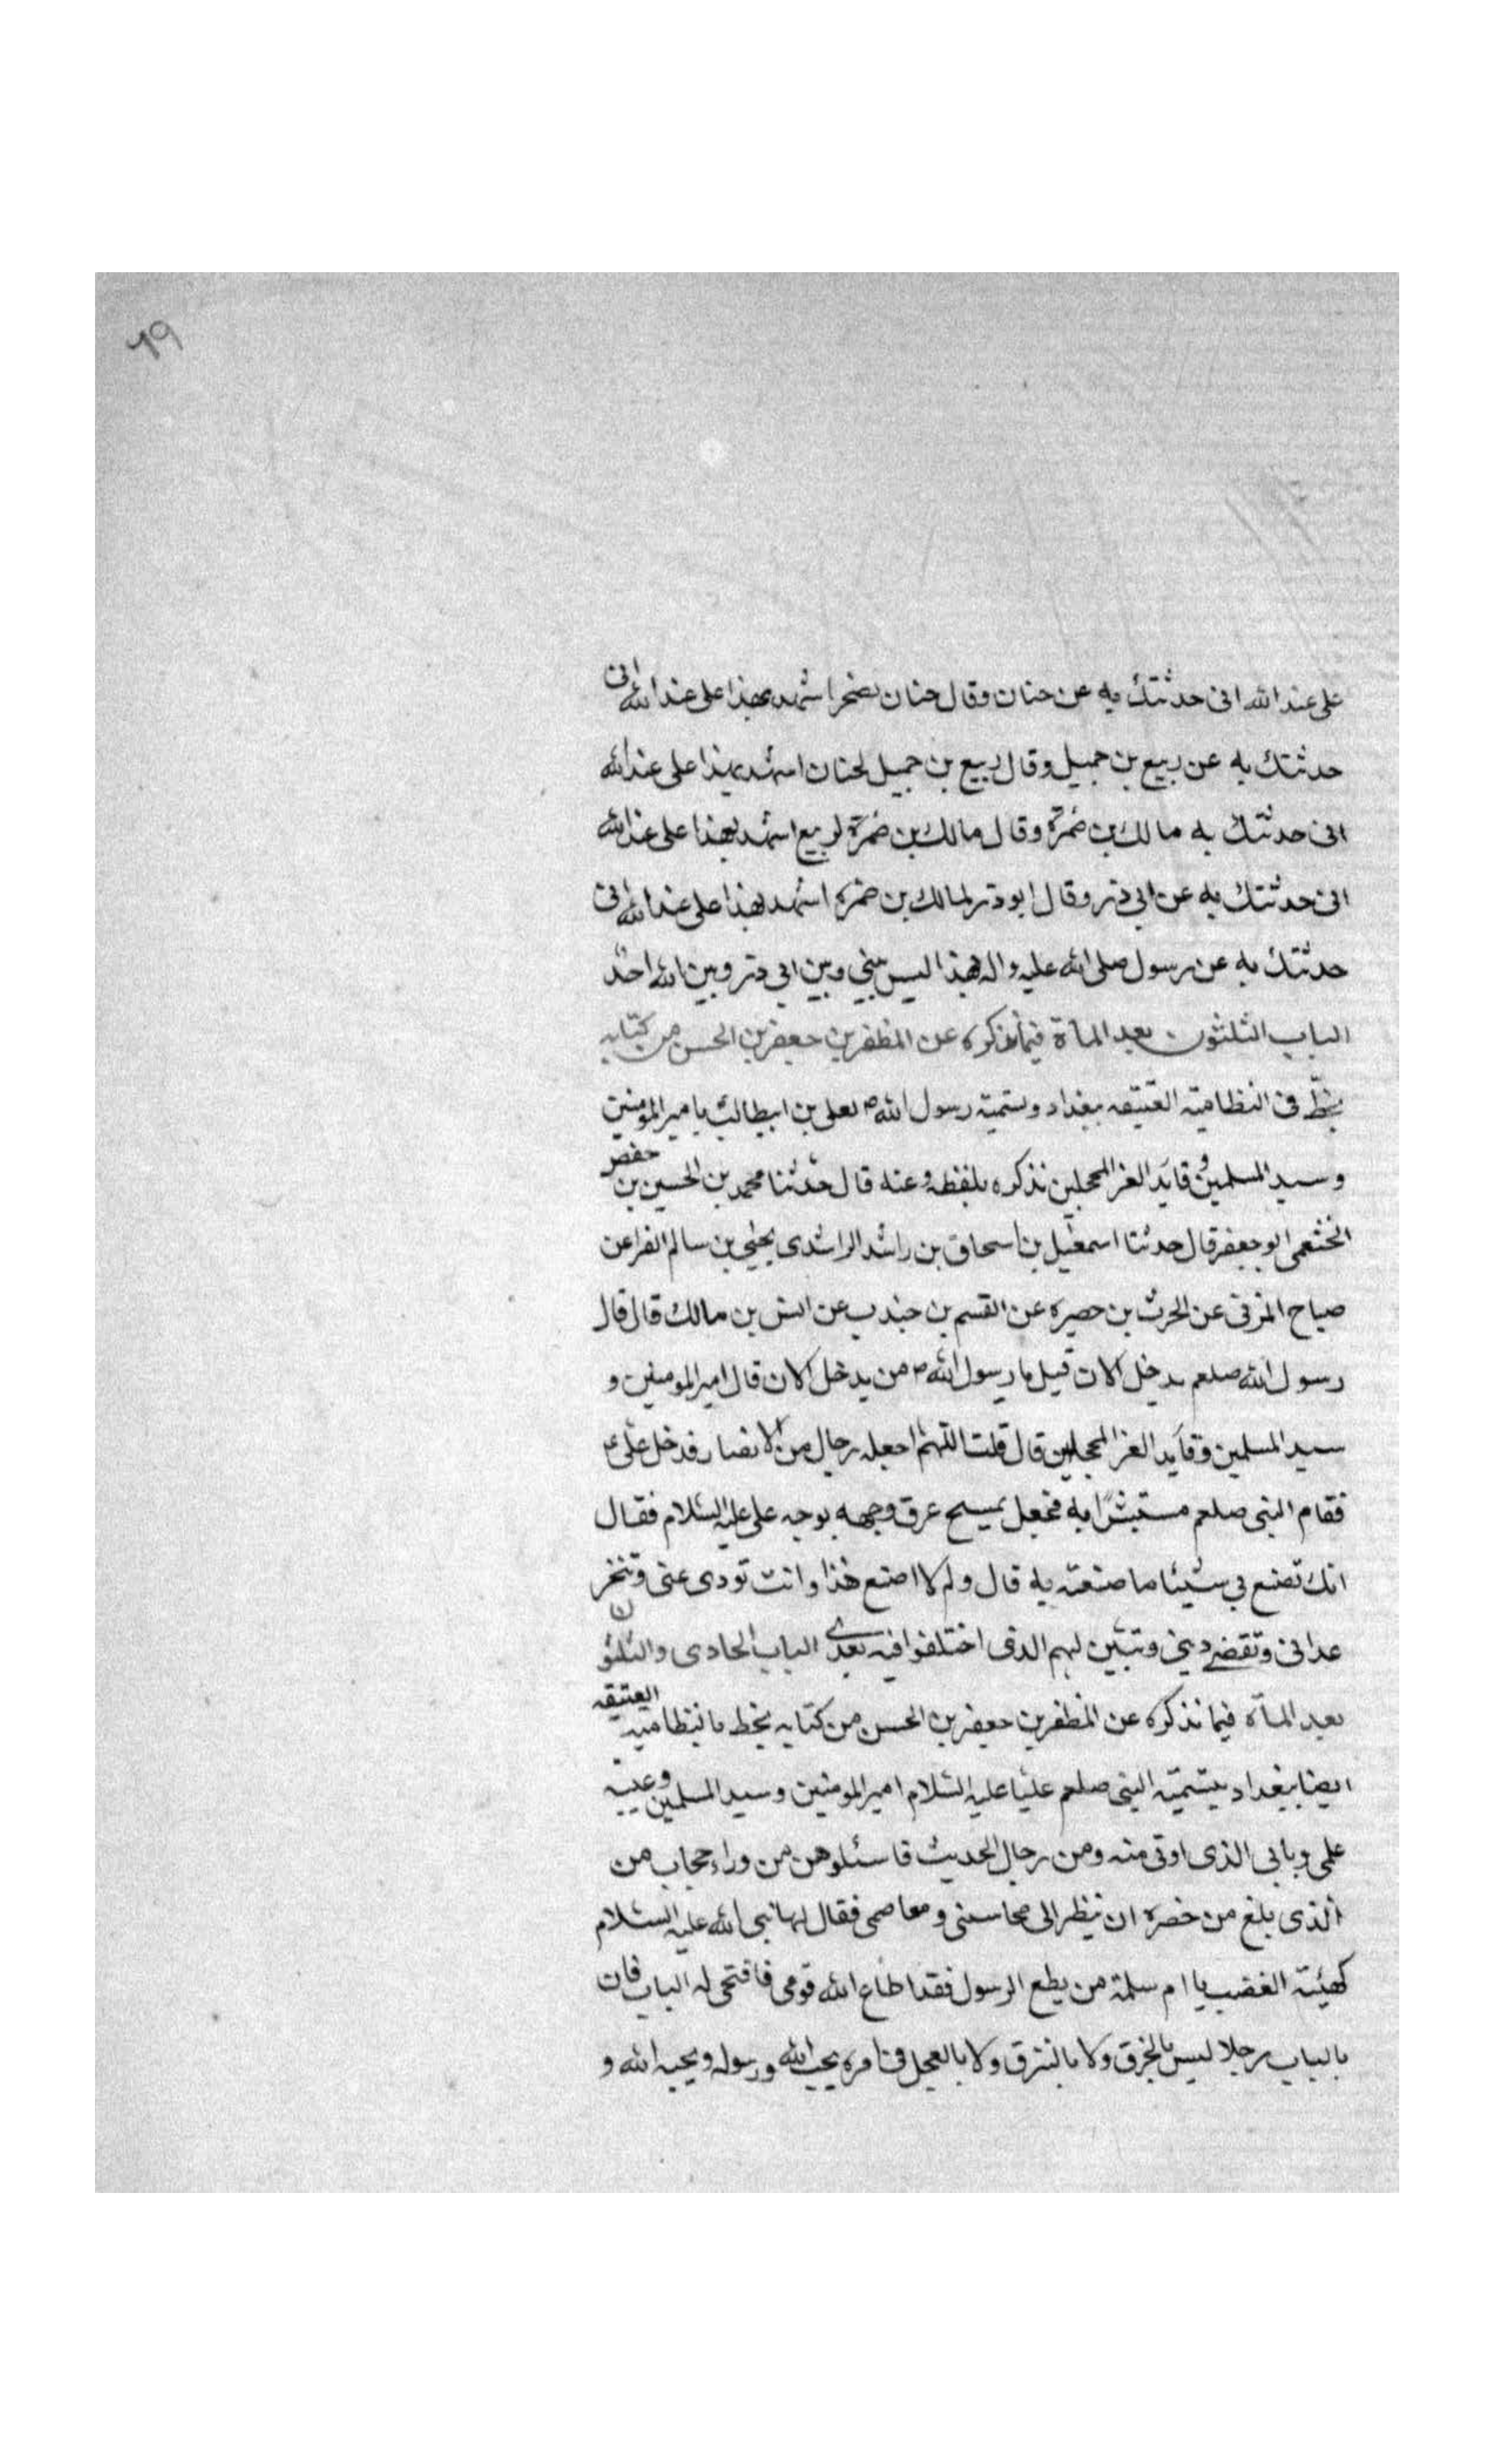 ٦٩
على عند الله انى حدثتك به عن حنان وقال حنان لصخر اشهد بهذا على عند الله انى
حدثتك به عن ربيع بن جميل وقال ربيع بن جميل لحنان اشهد بهذا على عند الله
انى حدثتك به مالك بن ضمرة وقال مالك بن ضمرة لربيع اشهد بهذا على عند الله
انى حدثتك به عن ابى ذر وقال ابو ذر لمالك بن ضمره اشهد بهذا على عند الله انى
حدثتك به عن رسول صلى الله عليه واله فهذا ليس بينى وبين ابى ذر وبين الله احد
الباب الثلثون بعد المأة فيما نذكره عن المظفر بن جعفر بن الحسن من كتابه
بخطّ فى النظاميّه العتيقه ببغداد وتسمية رسول الله ص لعلى بن ابيطالب بامير المؤمنين
وسيد المسلمين وقايد الغر المحجلين نذكره بلفظه وعنه قال حدثنا محمد بن الحسين بن حفص
الخثعمى ابو جعفر قال حدثنا اسمعيل بن اسحاق بن راشد الراشدى يحيى بن سالم الفرا عن
صباح المزنى عن الحرث بن حصيره عن القسم بن جندب عن انس بن مالك قال قال
رسول الله صلعم يدخل الان قيل يا رسول الله ص من يدخل الان قال امير المومنين و
سيد المسلمين وقايد الغر المحجلين قال قلت اللهم اجعله رجال من الانصار فدخل على ع
فقام النبى صلعم مستبشرًا به فجعل يمسح عرق وجهه بوجه على عليه السلام فقال
انك تصنع بى شيئا ما صنعته به قال ولم لا اصنع هذا وانت تودى عنى وتنخر
عدانى وتقضى دينى وتبين لهم الذى اختلفوا فيه بعدى الباب الحادى والثلثون
بعد المأة فيما نذكره عن المظفر بن جعفر بن الحسن من كتابه بخط بالنظاميه العتيقه
ايضا ببغداد بتسمية النبى صلعم عليًا عليه السلام امير المومنين وسيد المسلمين وعيبة
علمى وبابى الذى اوتى منه ومن رجال الحديث فاسئلوهن من وراء حجاب من
الذى بلغ من خضره ان ينظر الى محاسنى ومعاصمى فقال لها نبى الله عليه السلام
كهيئة الغضب يا ام سلمة من يطع الرسول فقد اطاع الله قومى فافتحى له الباب فان
بالباب رجلا ليس بالخرق ولا بالنزق ولا بالعجل فى امره يحب الله ورسوله ويحبه الله و